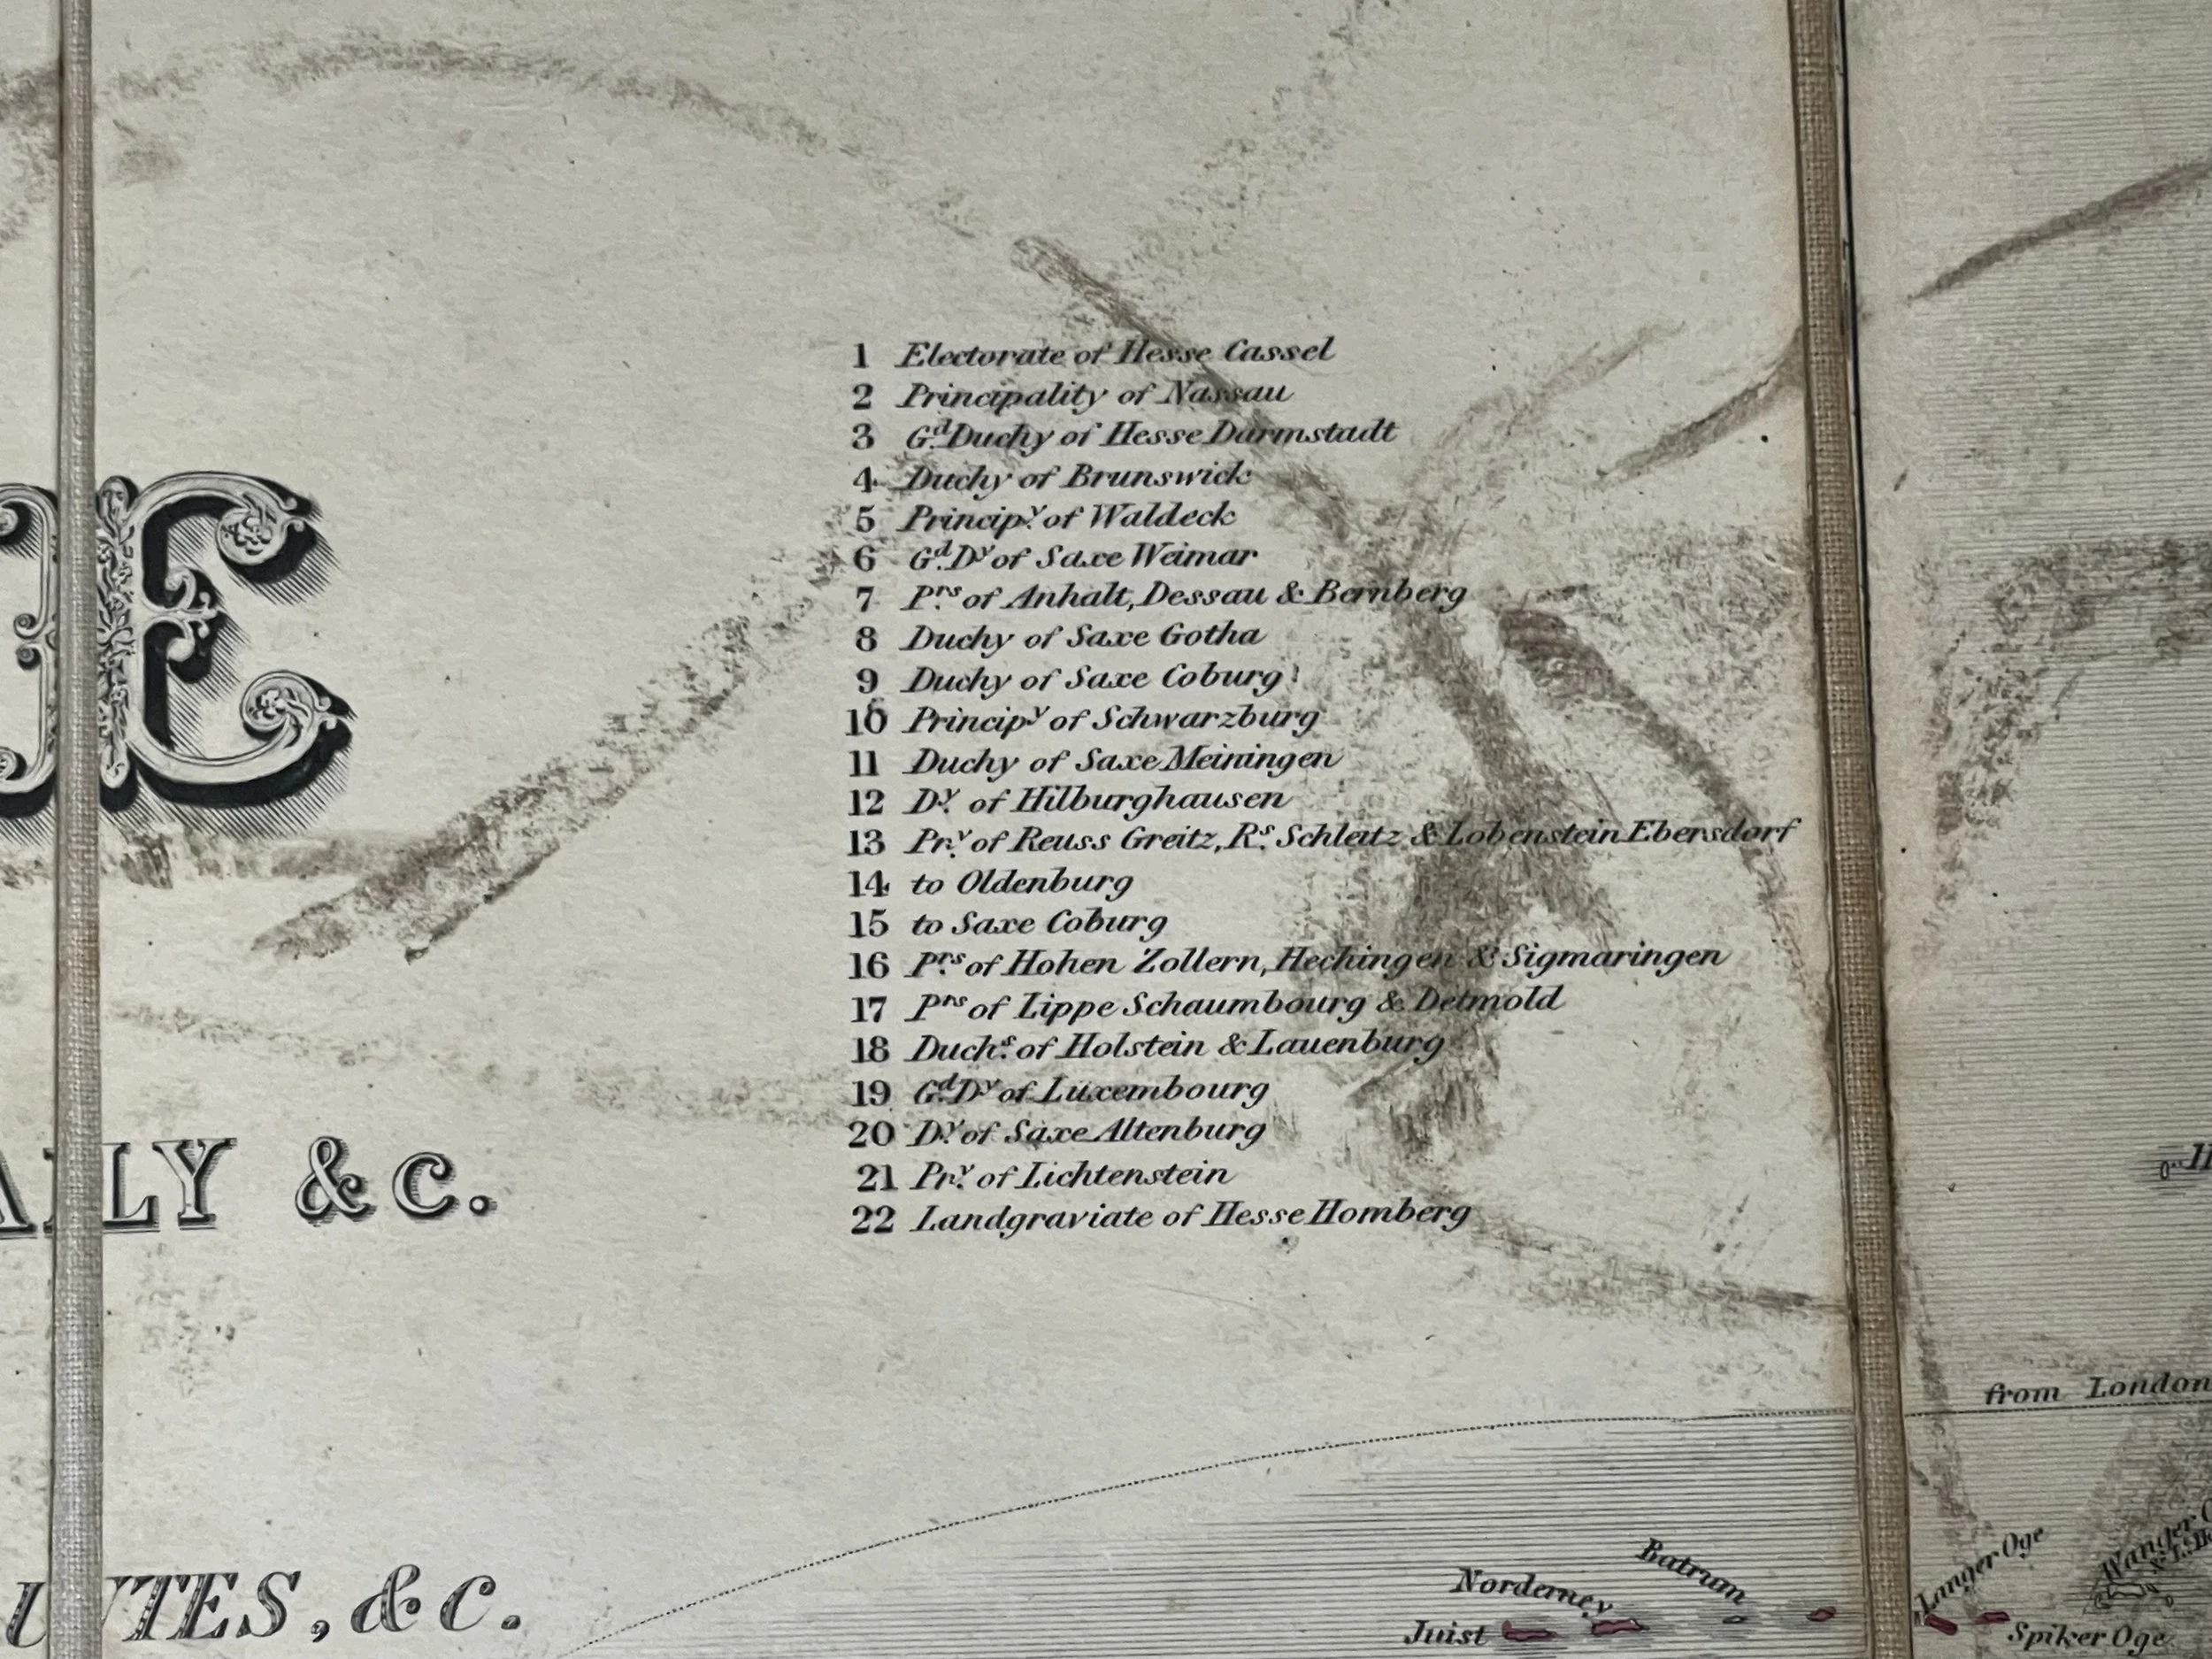 E
1 Electorate of Hesse Cassel
2 Principality of Nassau
3 Gd. Duchy of Hesse Darmstadt
4 Duchy of Brunswick
5 Principy. of Waldeck
6 Gd. Dy of Saxe Weimar
7 Prs. of Anhalt, Dessau & Bernberg
8 Duchy of Saxe Gotha
9 Duchy of Saxe Coburg
10 Principy of Schwarzburg
11 Duchy of Saxe Meiningen
12 Dy. of Hilburghausen
13 Pry. of Reuss Greitz, Rs. Schleitz & Lobenstein Ebersdorf
14 to Oldenburg
15 to Saxe Coburg
16 Prs. of Hohen Zollern, Hechingen & Sigmaringen
17 Prs of Lippe Schaumbourg & Detmold
18 Duchs. of Holstein & Lauenburg
19 Gd. Dy of Luxembourg
20 Dy. of Saxe Altenburg
21 Pry. of Lichtenstein
22 Landgraviate of Hesse Homberg
ALY &c.
from London
UTES, &c.
Batrum
Norderney
Juist
Langer Oge
Spiker Oge